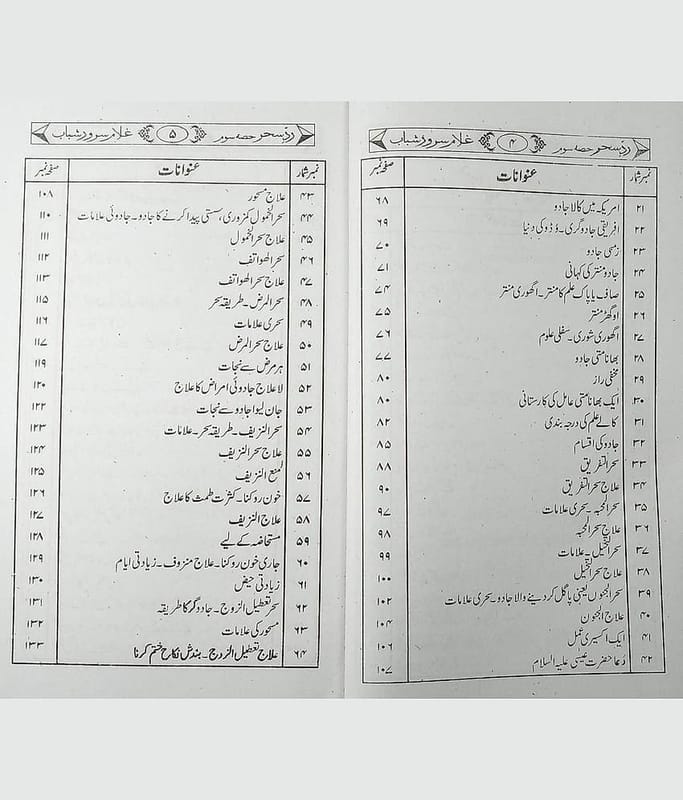 ردِ سحر حصہ سوم ۴ غلام سرور شباب
نمبر شمار عنوانات صفحہ نمبر
۲۱ امریکہ میں کالا جادو ۶۸
۲۲ افریقی جادوگری۔ وُڈو کی دنیا ۶۹
۲۳ رسمی جادو ۷۰
۲۴ جادو منتر کی کہانی ۷۱
۲۵ صاف یا پاک علم کا منتر۔ اگھوری منتر ۷۴
۲۶ اوگھڑ منتر ۷۵
۲۷ اگھوری شوری۔ سفلی علوم ۷۶
۲۸ بھانامتی جادو ۷۷
۲۹ مخفی راز ۸۰
۳۰ ایک بھانامتی عامل کی کارستانی ۸۰
۳۱ کالے علم کی درجہ بندی ۸۲
۳۲ جادو کی اقسام ۸۵
۳۳ سحر التفریق ۸۸
۳۴ علاج سحر التفریق ۹۰
۳۵ سحر المحبہ۔ سحری علامات ۹۷
۳۶ علاج سحر المحبہ ۹۸
۳۷ سحر التخیل۔ علامات ۹۹
۳۸ علاج سحر التخیل ۱۰۰
۳۹ سحر الجنون یعنی پاگل کر دینے والا جادو۔ سحری علامات ۱۰۲
۴۰ علاج الجنون ۱۰۴
۴۱ ایک اکسیری عمل ۱۰۶
۴۲ دُعا حضرت عیسیٰ علیہ السلام ۱۰۷
ردِ سحر حصہ سوم ۵ غلام سرور شباب
نمبر شمار عنوانات صفحہ نمبر
۴۳ علاج مسحور ۱۰۸
۴۴ سحر الخمول کمزوری، سستی پیدا کرنے کا جادو۔ جادوئی علامات ۱۱۰
۴۵ علاج سحر الخمول ۱۱۱
۴۶ سحر الھواتف ۱۱۲
۴۷ علاج سحر الھواتف ۱۱۳
۴۸ سحر المرض۔ طریقہ سحر ۱۱۵
۴۹ سحری علامات ۱۱۶
۵۰ علاج سحر المرض ۱۱۷
۵۱ ہر مرض سے نجات ۱۱۹
۵۲ لاعلاج جادوئی امراض کا علاج ۱۲۰
۵۳ جان لیوا جادو سے نجات ۱۲۲
۵۴ سحر النزیف۔ طریقہ سحر۔ علامات ۱۲۳
۵۵ علاج سحر النزیف ۱۲۴
۵۶ لمنع النزیف ۱۲۵
۵۷ خون روکنا۔ کثرت طمث کا علاج ۱۲۶
۵۸ علاج النزیف ۱۲۷
۵۹ مستحاضہ کے لیے ۱۲۸
۶۰ جاری خون روکنا۔ علاج منزوف۔ زیادتی ایام ۱۲۹
۶۱ زیادتی حیض ۱۳۰
۶۲ سحر تعطیل الزوج۔ جادوگر کا طریقہ ۱۳۱
۶۳ مسحور کی علامات ۱۳۲
۶۴ علاج تعطیل الزوج۔ بندش نکاح ختم کرنا ۱۳۳